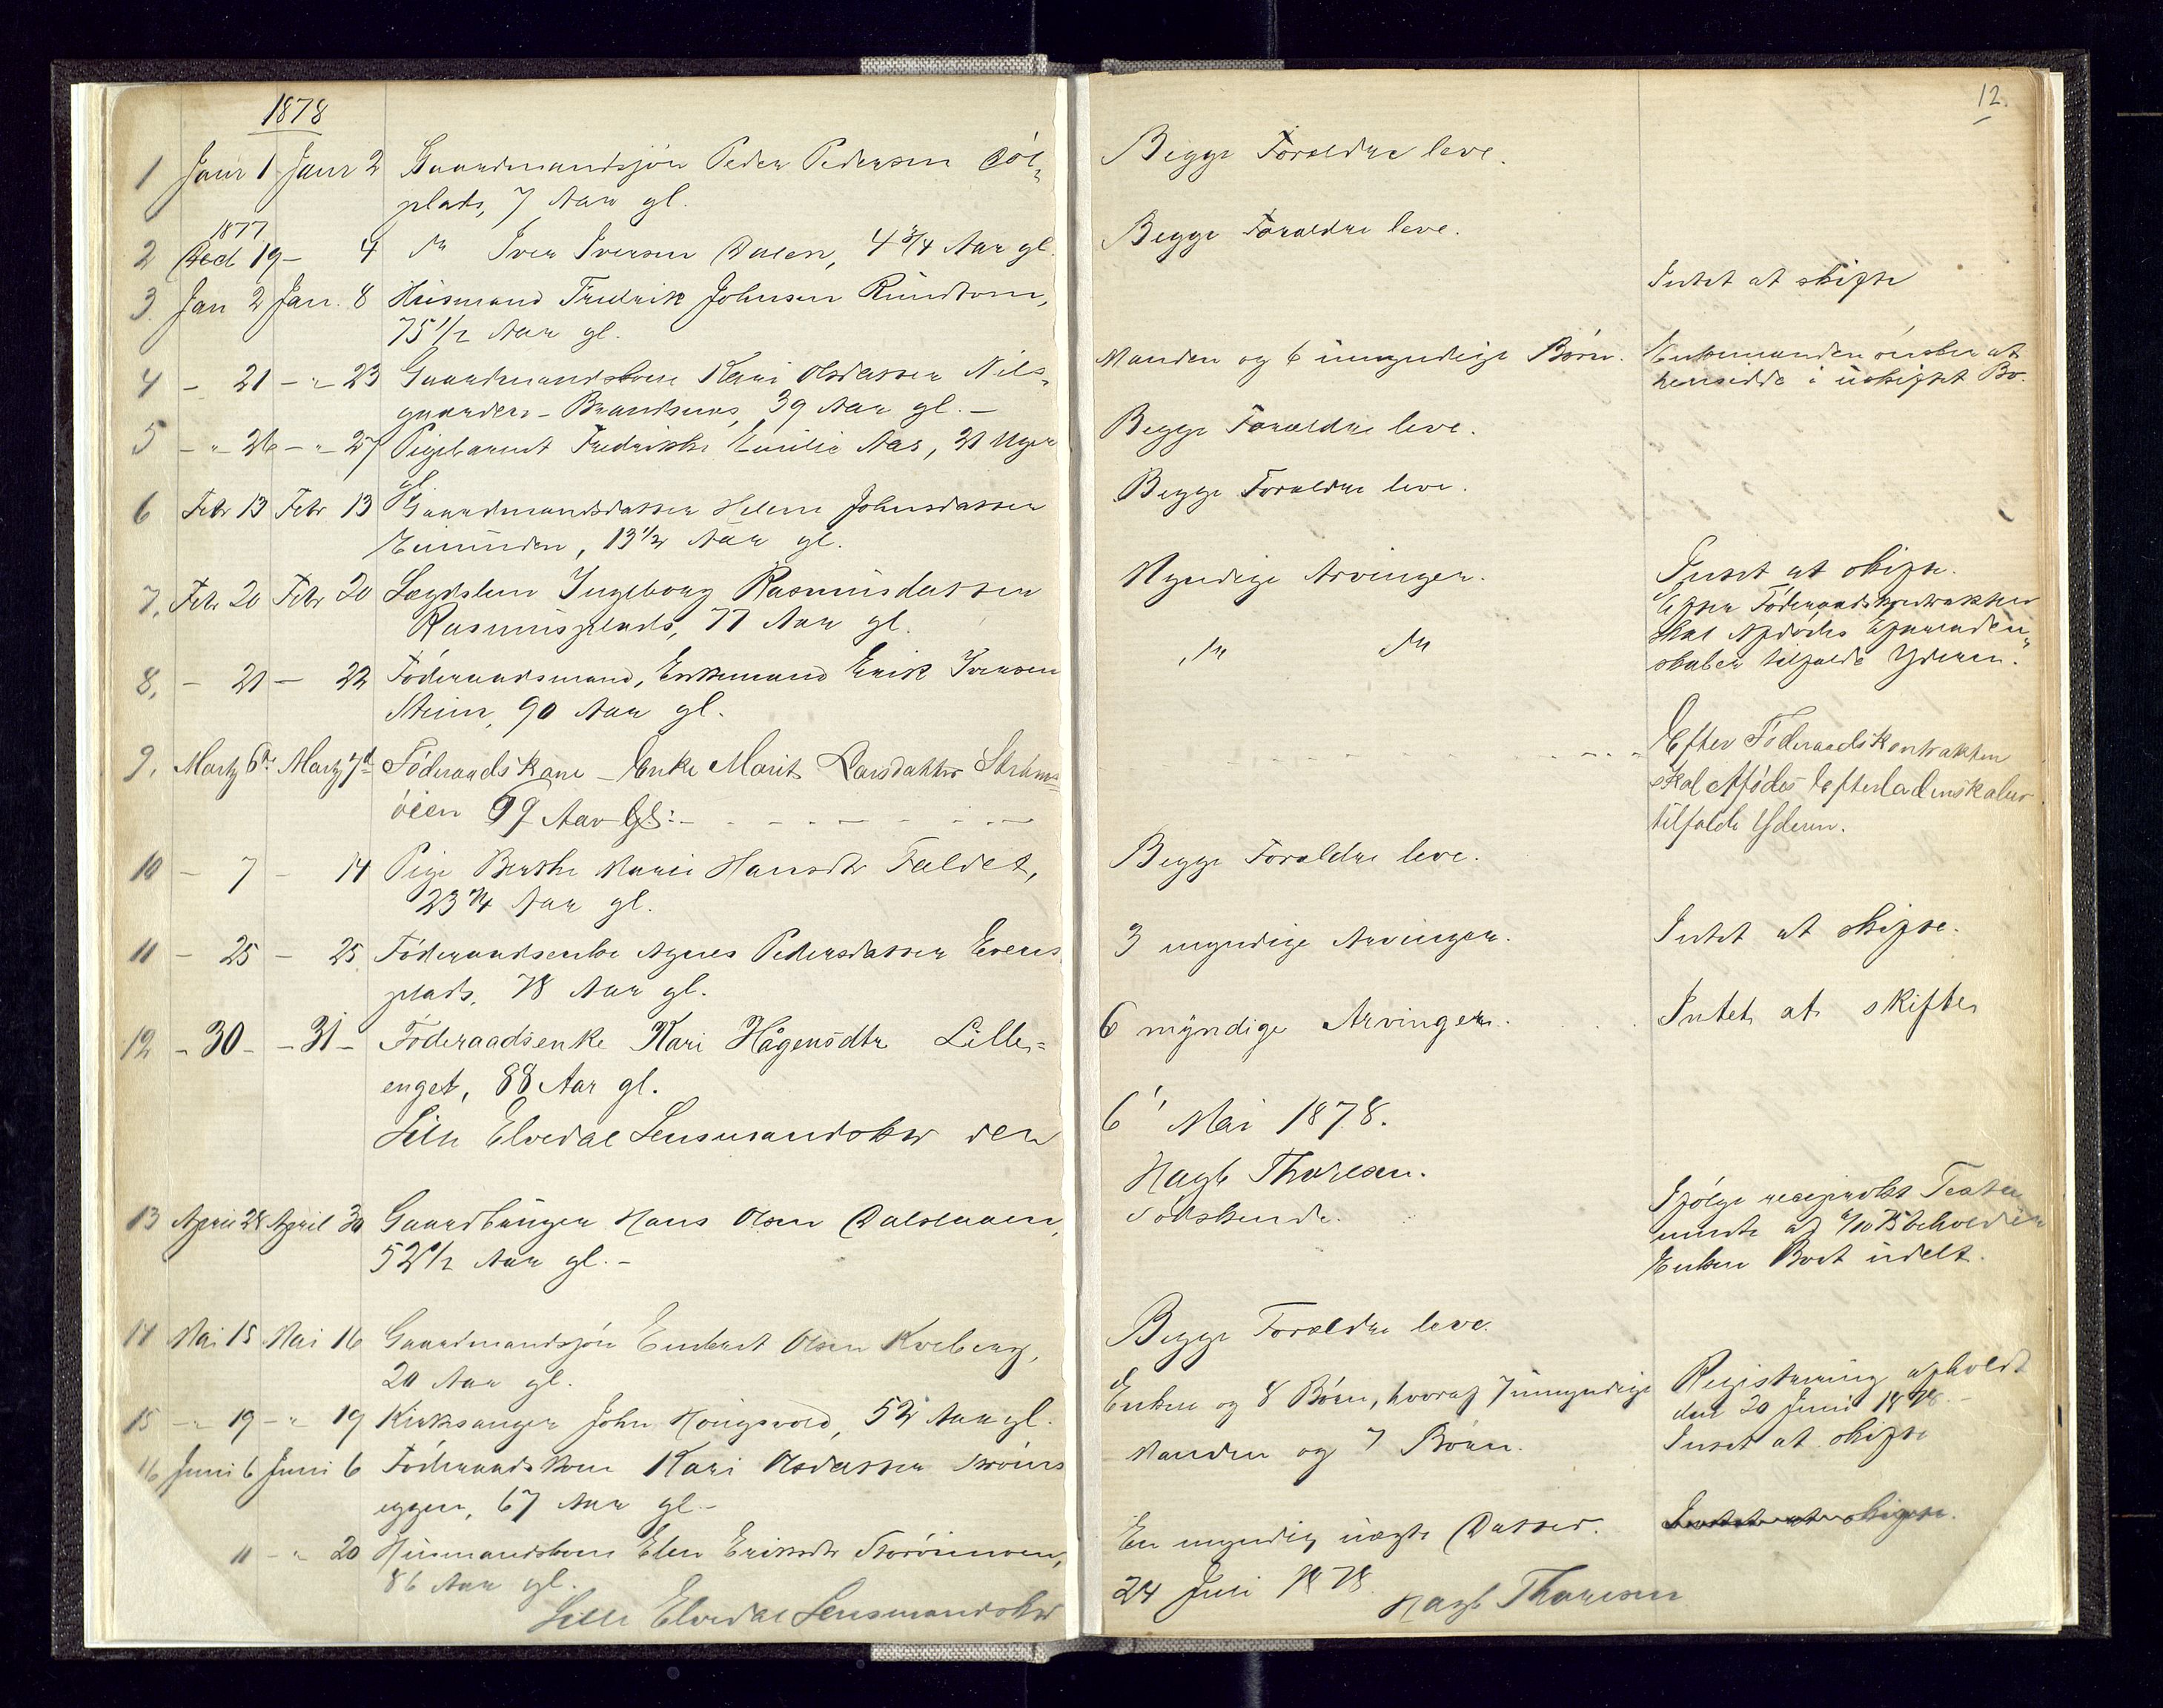 1878
12.
1 Janr 1 Janr 2 Gaardmandssøn Peder Pedersen
plads, 7 Aar gl.
Begge Forældre leve.
1877
2 Decb 19 – 4 do Iver Iversen Dalen, 4 3/4 Aar gl.
Begge Forældre leve.
3. Jan 2 Jan. 8 Husmand Fredrik Johnsen Rundtom,
75 1/2 Aar gl.
Intet at skifte
4 – 21 – " 23 Gaardmandskone Kari Olsdatter Nils-
gaarden – Brandsnes, 39 Aar gl. –
Manden og 6 umyndige Børn.
Enkemanden ønsker at
hensidde i uskiftet Bo.
5 – " 26 – " 27 Pigebarnet Fredrikke Emilie Aas, 21 Uger
gl.
Begge Forældre leve.
6 Febr 13 Febr 13 Gaardmandsdatter Helene Johnsdatter
13 1/2 Aar gl.
Begge Forældre leve.
7. Febr 20 Febr 20 Lægdslem Ingeborg Rasmusdatter
Rasmusplads, 77 Aar gl.
Myndige Arvinger.
Intet at skifte.
8. – 21 – 22 Føderaadsmand, Enkemand Erik Iversen
Steim, 90 Aar gl.
do do
Efter Føderaadskontrakten
skal Afdødes Efterladen-
skaber tilfalde Yderen.
9. Marts 6te Marts 7d Føderaadskone – Enke Marit Larsdatter Strøms-
øien 69 Aar Gl: –
Efter Føderaadskontrakten
skal Afdødes Efterladenskaber
tilfalde Yderen.
10 – 7 – 14 Pige Berthe Marie Hansdtr Faldet,
23 1/4 Aar gl.
Begge Forældre leve.
11 – 25 – 25 Føderaadsenke Agnes Pedersdatter Evens
plads, 78 Aar gl.
3 myndige Arvinger.
Intet at skifte.
12 – 30 – – 31 – Føderaadsenke Kari Hågensdtr Lille-
enget, 88 Aar gl.
6 myndige Arvinger.
Intet at skifte
Lille Elvedal Lensmandsktr den
6' Mai 1878.
Hagb Thoresen.
13 April 28 April 30 Gaardbruger Hans Olsen Dalslaaen,
52 1/2 Aar gl. –
Sødskende.
Ifølge reciprokt Testa
mente af 6/10 75 beholder
Enken Boet udelt.
14 Mai 15 Mai 16 Gaardmandssøn Embret Olsen Kveberg,
20 Aar gl.
Begge Forældre leve.
15 – " 19 – " 19 Kirksanger John Hougsvold, 52 Aar gl.
Enken og 8 Børn, hvoraf 7 umyndige
Registrering afholdt
den 20 Juni 1878. –
16 Juni 6 Juni 6 Føderaadskone Kari Olsdatter Trøns
eggen, 67 Aar gl. –
Manden og 7 Børn.
Intet at skifte
11 – " 20 Husmandskone Elen Eriksdtr Storøimoen,
86 Aar gl.
En myndig uægte Datter.
Intet at skifte.
Lille Elvedal Lensmandsktr
24 Juli 1878. Hagb Thoresen